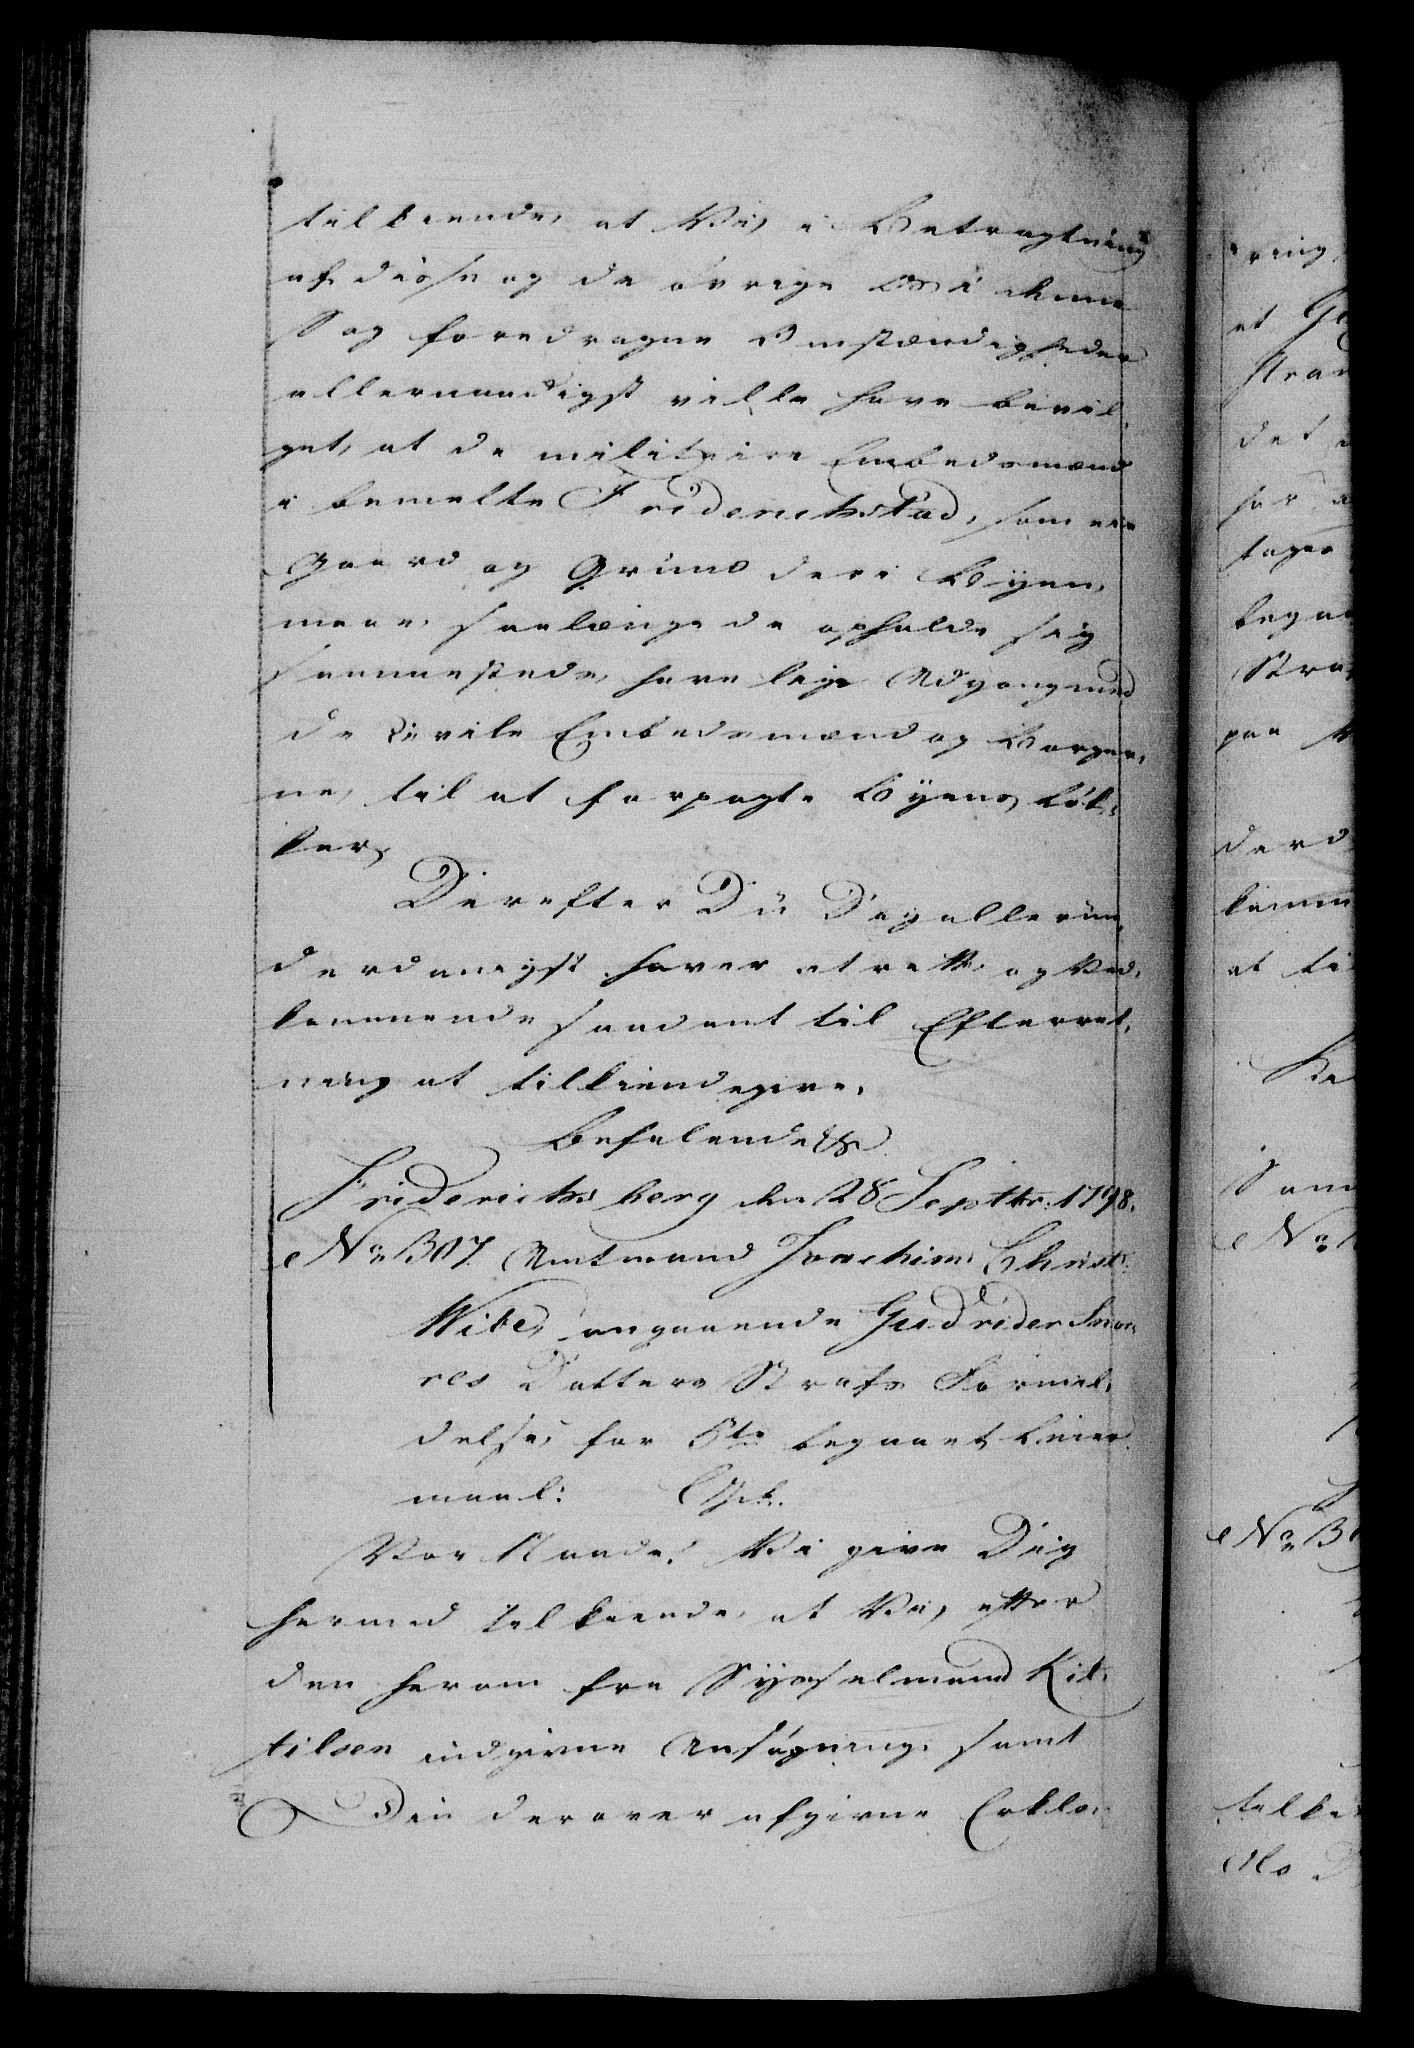 tilkiende, at Vi, i Betragtning
af disse og de øvrige Os i denne
Sag foredragne Omstændigheder
allernaadigst ville have bevil,
get, at de militaire Embedsmænd
i bemelte Friderichstad, som eie
Gaard og Grund der i Byen,
maae, saalænge de opholde sig
sammestede, have lige Adgang med
de Civile Embedsmænd og Borger,
ne, til at forpagte Byens Løk,
ker,
Derefter Du Dig allerun,
derdanigst haver at rette, og Ved,
kommende saadant til Efterret,
ning at tilkiendegive.
Befalende &c.
Friderichsberg den 28 Septbr: 1798.
No 307. Amtmand Joachim Christ:
Wibe, angaaende Gudrider Snor
res Datters Straf Formil,
delse, for 5te begaaet Leier
maal:
Vor Naade! Vi give Dig
hermed tilkiende, at Vi, efter
den herom fra Sysselmand Kit,
tilsen indgivne Ansøgning, samt
Din derover afgivne Erklæ,